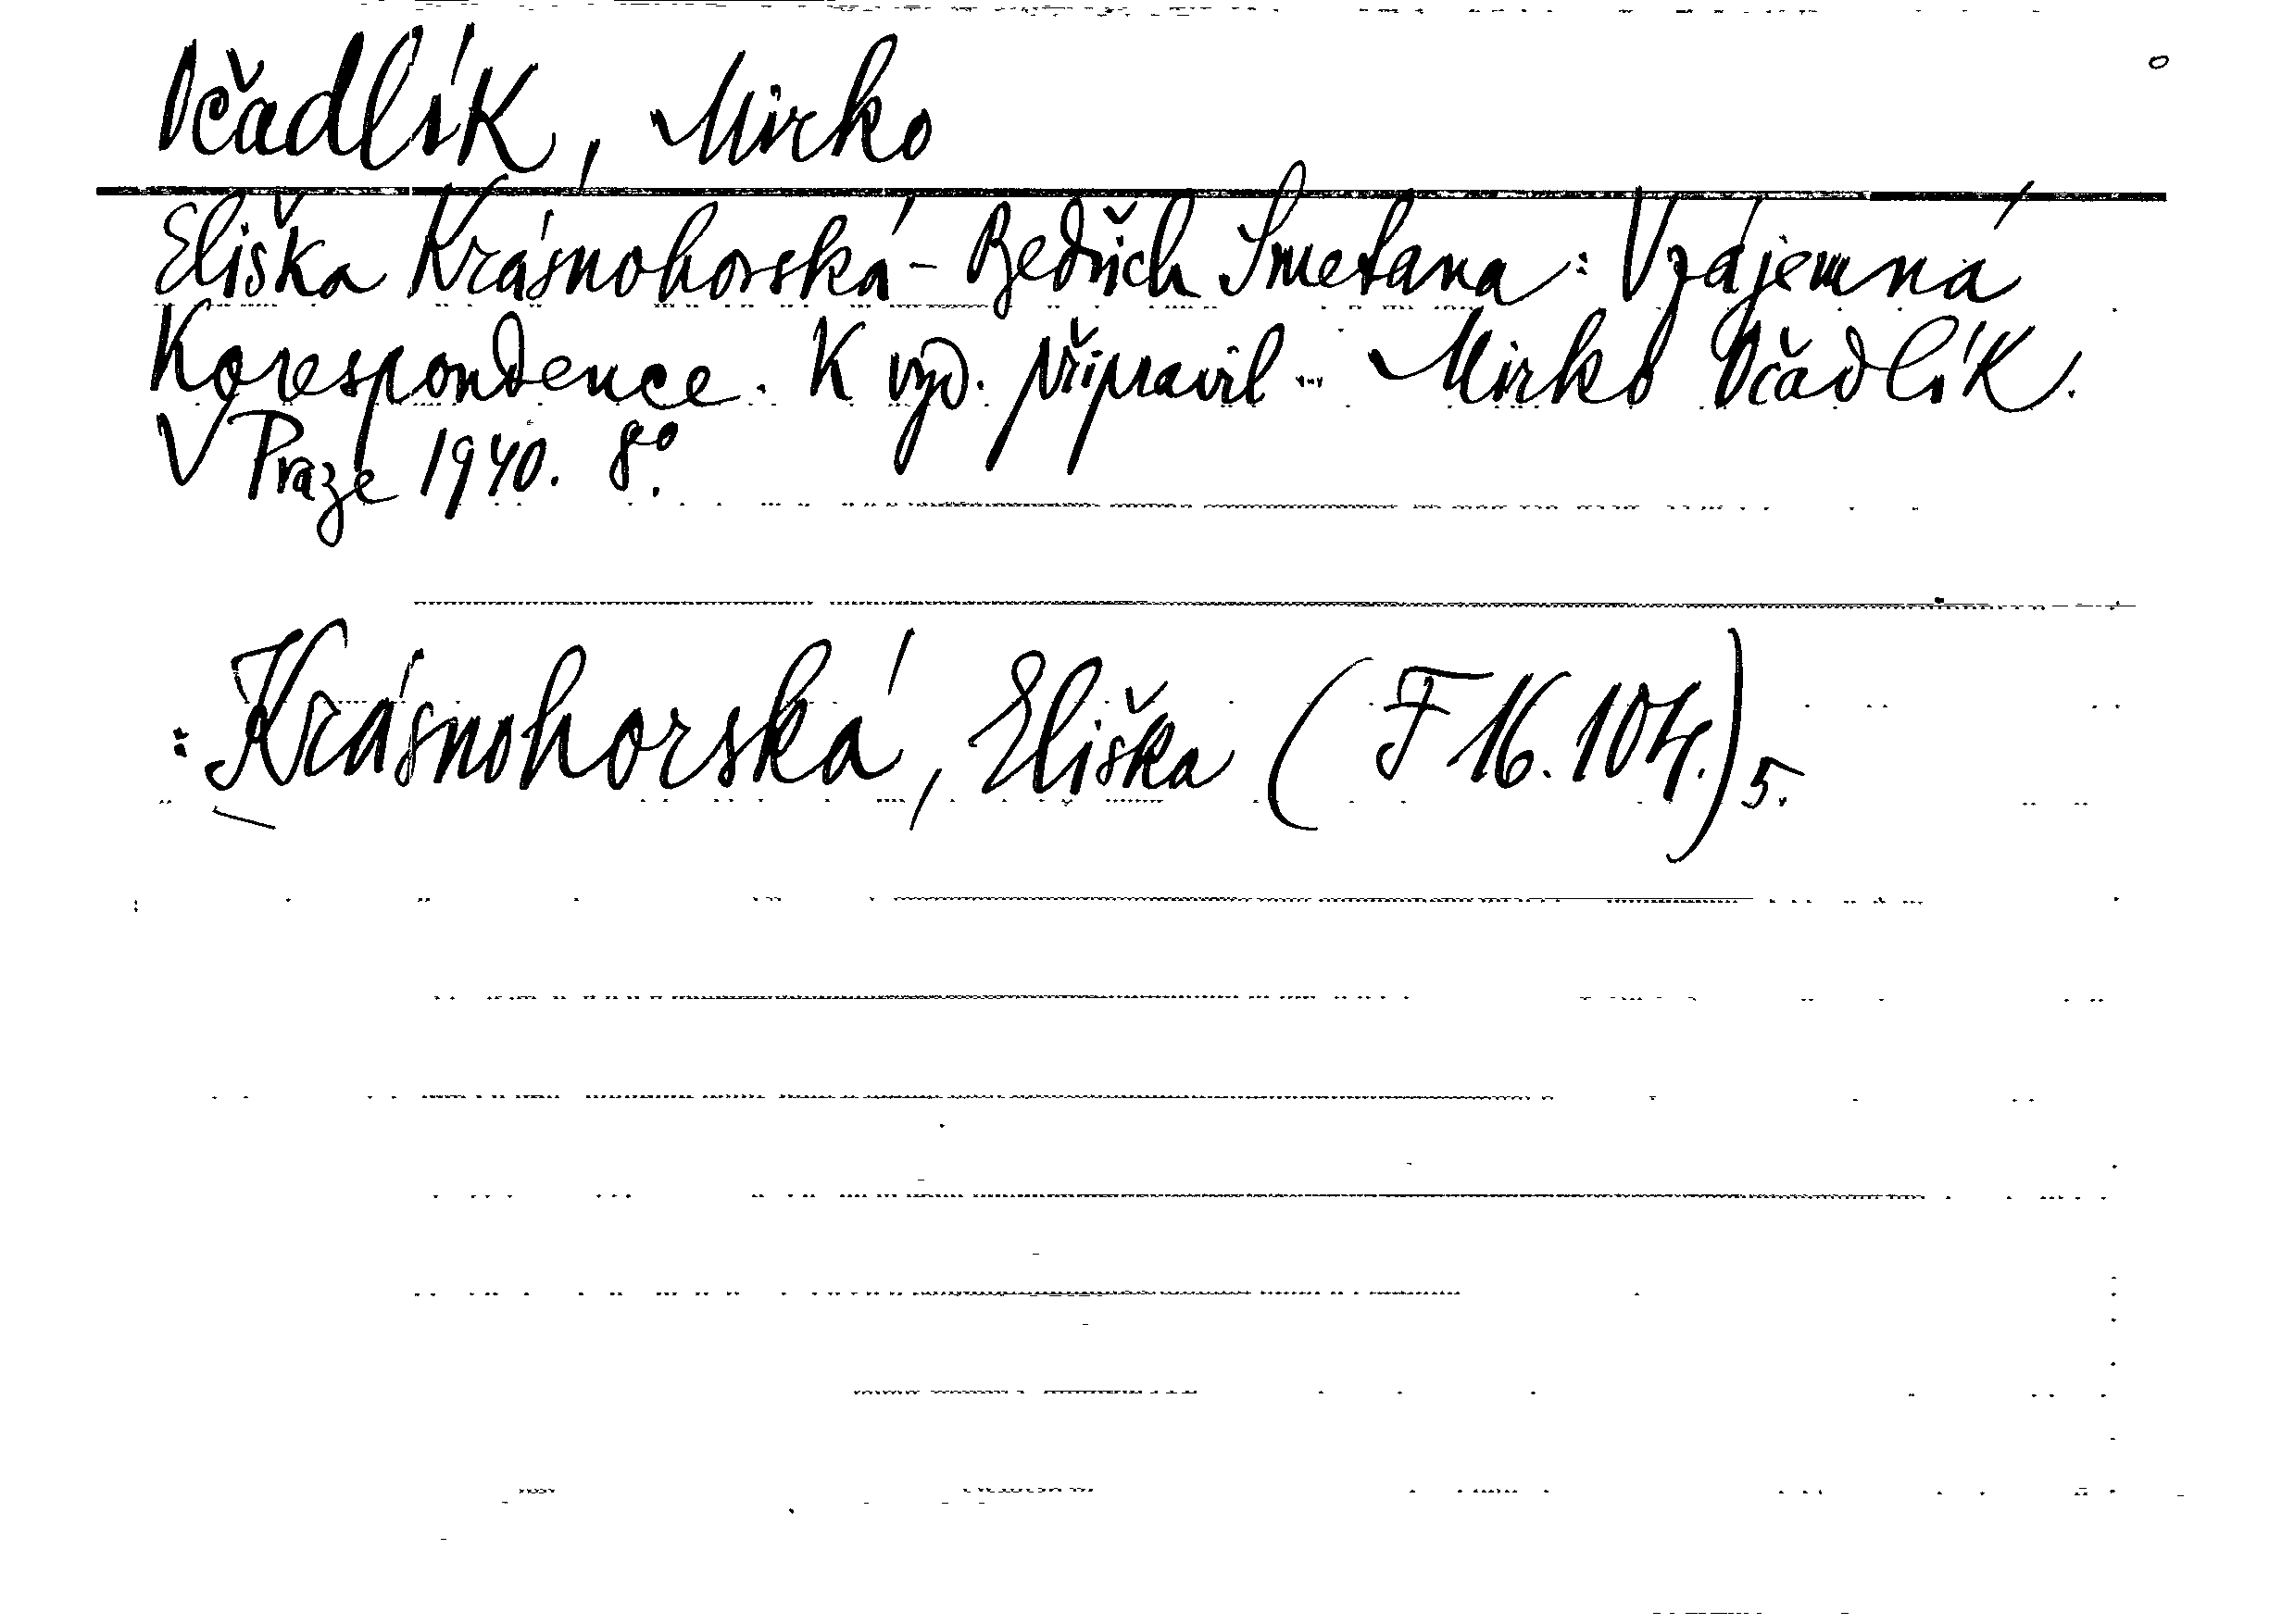 Očadlík, Mirko
Eliška Krásnohorská - Bedřich Smetana: Vzájemná
Korespondence. K vyd. připravil ... Mirko Očadlík.
V Praze 1940. 8°.
: Krásnohorská, Eliška (F 16.104.) 5.